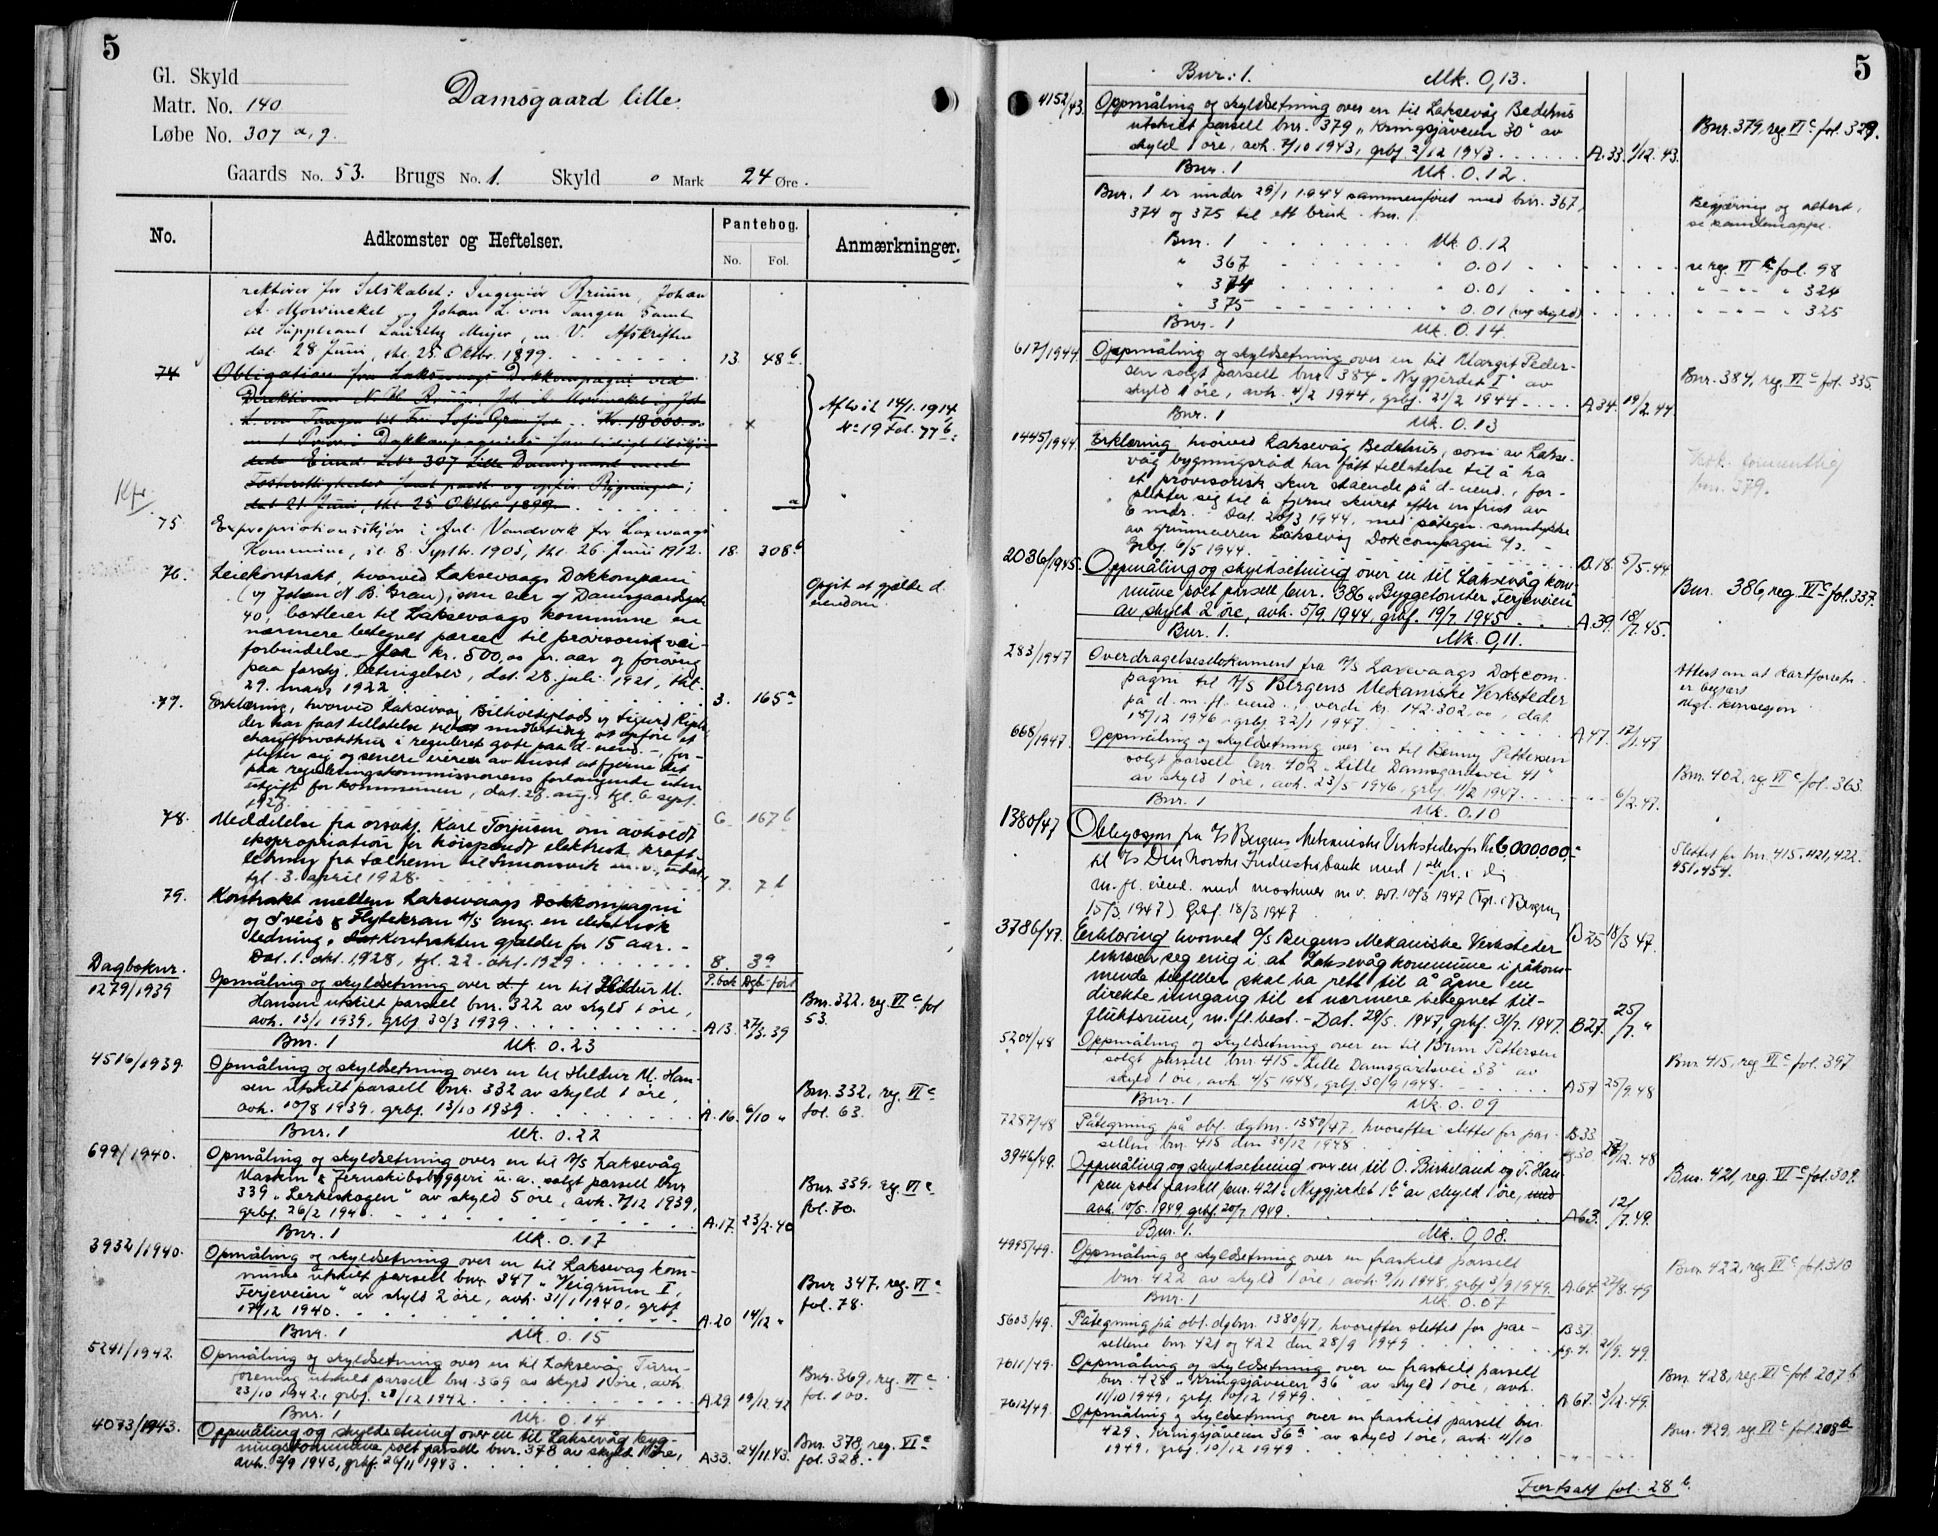 5
Gl. Skyld
Matr. No. 140
Løbe No. 307 a, g.
Damsgaard lille.
Gaards No. 53. Brugs No. 1. Skyld " Mark 24 Øre.
No. Adkomster og Heftelser. Pantebog. Anmærkninger.
No. Fol.
rektører for Selskabet: Ingeniør Bruun, Johan
A. Mowinckel og Johan L. von Tangen samt
til Suppleant Lauritz Meyer, m. V. Afskriften
dat. 28 Juni, thl. 25 Oktbr. 1899. 13. 48 b
74 Obligation fra Laksevaags Dokkompagni ved
Direktionen
til Fru Sofie Gran for Kr. 18000.00
Aflvst 14/1. 1914
No 19 Fol. 77 b.
deds Eiend. L.No 307 Lille Damsgaard med
dat. 21 Juni, thl. 25 Oktbr 1899.
75. Expropriationsskjøn i Anl. Vandverk for Laxevaags
Kommune, 8. Septbr. 1905, thl. 26. Juni 1912. 18. 308 b
76. Leiekontrakt, hvorved Laksevaags Dokkompani
(og Johan N. B. Grau), som eier af Damsgaardsgate
40, bortleier til Laksevaags kommune en
nærmere betegnet parcel til provisorisk vei-
forbindelse for kr. 500,00 pr. aar og forøvrig
paa forskj. betingelser, dat. 28. juli 1921, thl.
29. mars 1922. 3. 165 a
Opgit at gjælde d.
eiendom.
77. Erklæring, hvorved Laksevaag Bilhvileplads og Sigurd
der har faat tillatelse til midlertidig at opføre et
chaufforvakthus i reguleret gate paa d. eiend., for-
plikter sig og senere eiere av huset at fjerne det
paa reguleringskommissionens forlangende uten
utgift for kommunen, dat. 23. aug., tgl. 6 sept.
1927. 6. 167 b
78. Meddelelse fra orsakf. Karl Torjusen om avholdt
ekspropriation for høispendt elektrisk kraft-
ledning fra Fælheim til Simonsvik m.v.,
tgl. 3. april 1928. 7. 7 b
79. Kontrakt mellem Laksevaags Dokkompagni
og Sveis & Flytekran A/S ang. en elektrisk
ledning. Kontrakten gjælder for 15 aar. -
Dat. 1. okt. 1928, tgl. 22. okt. 1929 8. 39
Dagboknr. P. bok Dgb. ført
1279/1939 Opmåling og skyldsetning over en til Hildur M.
Hansen utskilt parsell bnr. 322 av skyld 1 øre,
avh. 13/1 1939, grbf. 30/3 1939 A.13. 27/3.39
Bnr. 322, reg. VI c fol
53.
Bnr. 1 Mk. 0.23
4516/1939. Opmåling og skyldsetning over en til Hildur M. Han-
sen utskilt parsell bnr. 332 av skyld 1 øre,
avh. 10/8 1939, grbf. 13/10 1939 A.16. 6/10 "
Bnr. 332, reg. VI c
fol. 63.
Bnr. 1 Mk. 0.22
699/1940. Opmåling og skyldsetning over en til A/S Laksevåg
Maskin & Jernskibsbyggeri u. a. solgt parsell bnr.
339 „Lerkeskogen" av skyld 5 øre, avh. 7/12 1939,
grbf. 26/2 1940. A.17. 23/2.40
Bnr. 339, reg. VI c
fol. 70.
Bnr. 1 Mk. 0.17
3932/1940. Opmåling og skyldsetning over en til Laksevåg kom-
mune utskilt parsell bnr. 347 „Veigrunn I,
Ferjeveien" av skyld 2 øre, avh. 31/1 1940, grbf
17/12 1940. A.20 14/12 "
Bnr. 347, reg. VI c
fol. 78.
Bnr. 1 Mk. 0.15
5241/1942. Opmåling og skyldsetning over en til Laksevåg Turn-
forening utskilt parsell bnr. 369 av skyld 1 øre, avh.
23/10 1942, grbf. 28/12 1942. A.29 19/12 42
Bnr. 369, reg. VI c
fol. 100.
Bnr. 1 Mk. 0.14
4073/1943. Oppmåling og skyldsetning over en til Laksevåg byg-
ningskommune solt parsell bnr. 378 av skyld 1 øre,
avh. 2/9 1943, grbf. 26/11 1943. A33. 24/11.43.
Bnr. 378, reg. VI c
fol. 328.
5
Bnr. 1. Mk. 0,13.
4152/43. Oppmåling og skyldsetning over en til Laksevåg Bedehus
utskilt parsell bnr. 379 „Kringsjåveien 30" av
skyld 1 øre, avh. 7/10 1943, grbf. 2/12 1943. A.33. 1/12.43.
Bnr. 379, reg. VI c fol. 329.
Bnr. 1 Mk. 0.12.
Bnr. 1 er under 29/1 1944 sammenføiet med bnr. 367,
374 og 375 til ett bruk bnr. 1
Begjæring og attest,
se samlemappe.
Bnr. 1 Mk. 0.12
" 367 " 0.01 se reg. VI c fol. 98
" 374 " 0.01 " - " - " 324
" 375 " 0.01 (ny skyld) " - " - " 325
Bnr. 1 Mk. 0.14.
617/1944. Oppmåling og skyldsetning over en til Margit Peder-
sen solgt parsell bnr. 384 „Nygjerdet I" av
skyld 1 øre, avh. 4/2 1944, grbf. 21/2 1944 A.34. 19/2.44.
Bnr. 384, reg. VI c fol. 335.
Bnr. 1 Mk. 0.13
1445/1944. Erklæring hvorved Laksevåg Bedehus, som av Lakse-
våg bygningsråd har fått tillatelse til å ha
et provisorisk skur stående på d. eiend., for-
plikter sig til å fjerne skuret efter en frist av
6 mdr. Dat. 20/3 1944, med påtegn. samtykke
av grunneieren Laksevåg Dokcompagni A/S.
Grbf. 6/5 1944. B.18. 5/5.44.
Vedk. formentlig
bnr. 379.
2036/1945. Oppmåling og skyldsetning over en til Laksevåg kom-
mune solt parsell bnr. 386 „Byggetomter Ferjeveien"
av skyld 2 øre, avh. 5/9 1944, grbf. 19/7 1945 A.39. 18/7.45.
Bnr. 386, reg. VI c fol. 337.
Bnr. 1. Mk. 0,11.
283/1947 Overdragelsesdokument fra A/S Laxevaags Dokcom-
pagni til A/S Bergens Mekaniske Verksteder
på d. m. fl. eiend., verdi kr. 142.302,00, dat.
18/12 1946, grbf. 22/1 1947 A.47. 17/1.47
Attest om at kartforretn.
er begjært
Mgl. konsesjon
668/1947. Oppmåling og skyldsetning over en til Benny Pettersen
solgt parsell bnr. 402 „Lille Damsgårdsvei 41"
av skyld 1 øre, avh. 23/5 1946, grbf. 11/2 1947. " 6/2.47.
Bnr. 402, reg. VI c fol. 363.
Bnr. 1 Mk. 0.10
1380/47 Obligasjon fra A/S Bergens Mekaniske Verksteder for kr 6.000.000,-
til A/S Den Norske Industribank med 1ste pr. i d.
m. fl. eiend. med maskiner m.v. dat. 10/3 1947 (Tgl. i Bergen
15/3 1947). Grbf. 18/3 1947 B 25 18/3 47.
Slettet for bnr. 415, 421, 422,
451, 454.
3786/47. Erklæring hvorved A/S Bergens Mekaniske Verksteder
erklærer seg enig i at Laksevåg kommune i påkom-
mende tilfelle skal ha rett til å åpne en
direkte inngang til et nærmere betegnet til-
fluktsrum, m. fl. best. - Dat. 29/5. 1947, grbf. 31/7. 1947. B27. 25/7. "
5204/48 Oppmåling og skyldsetning over en til Brun Pettersen
solgt parsell bnr. 415 „Lille Damsgårdsvei 33" av
skyld 1 øre, avh. 4/5 1948, grbf. 30/9 1948. A57 25/9.48
Bnr. 415, reg. VI c fol. 397
Bnr. 1 Mk. 0.09
7287/48 Påtegning på obl. dgbnr. 1380/47, hvorefter slettet for par-
sellen bnr. 415 den 30/12 1948 B.33 pg. 30. 27/12. 48
3946/49. Oppmåling og skyldsetning over en til O. Birkeland og T. Han-
sen solt parsell bnr. 421 „Nygjerdet 1 b" av skyld 1 øre,
avh. 10/5. 1949, grbf. 20/7 1949. A63. 12/7.49.
Bnr. 421, reg. VI c fol. 309.
Bnr. 1. Mk. 0,08.
4995/49. Oppmåling og skyldsetning over en fraskilt parsell
bnr. 422 av skyld 1 øre, avh. 9/11 1948, grbf. 3/9 1949. A.64. 27/8.49
Bnr. 422, reg. VI c fol. 310
Bnr. 1 Mk. 0.07
5603/49. Påtegning på obl. dgbnr. 1380/47, hvorefter slettet for par-
sellene bnr. 421 og 422 den 28/9 1949 B37 pg. 4. 21/9. 49.
7611/49. Oppmåling og skyldsetning over en fraskilt parsell
bnr. 428 „Kringsjåveien 36" av skyld 1 øre, avh.
11/10 1949, grbf. 10/12 1949. A 67. 3/12.49.
Bnr. 428, reg VI c fol. 207 b
7612/49. Oppmåling og skyldsetning over en fraskilt parsell bnr.
429 „Kringsjåveien 36 a" av skyld 1 øre, avh. 11/10
1949, grbf. 10/12 1949. " - " -
Bnr. 429, reg VI c fol. 208 a
Fortsatt fol. 28 b.